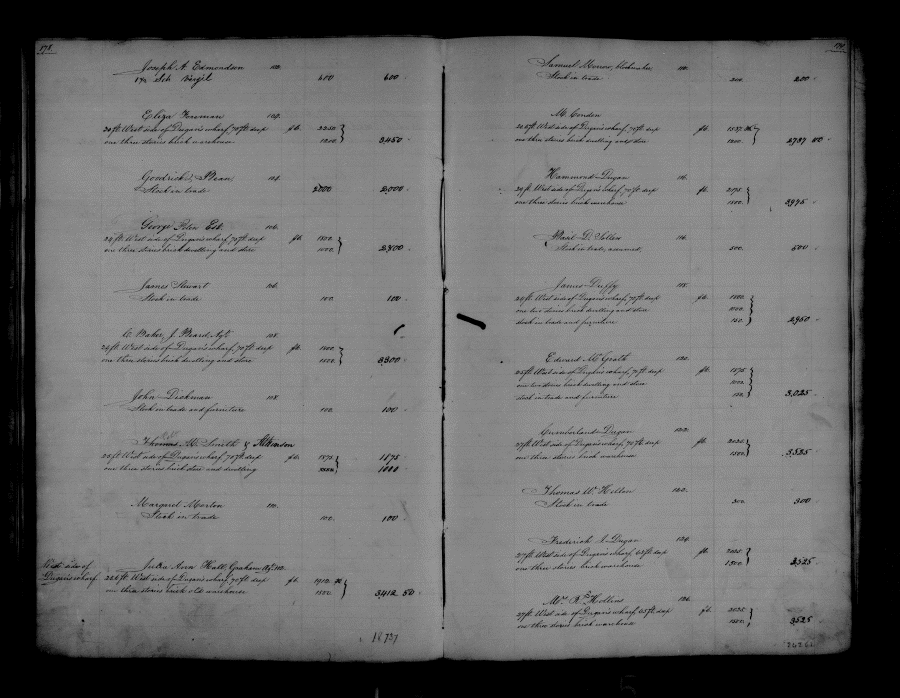 178.
Joseph A. Edmondson 102.
Sch 600 600
Eliza Foreman 104.
20 ft. West side of Dugan's wharf, 70 ft deep ft. 2250
one three stories brick warehouse 1200. 3,450
Goodrich & Bean 104.
Stock in trade 2000 2,000
George Peters Est. 106.
24 ft. West side of Dugan's wharf, 70 ft. deep ft. 1800.
one three stories brick dwelling and store
James Stewart 106.
Stock in trade 100. 100
C. Baker, J. Beard, Agt. 108.
24 ft. West side of Dugan's wharf, 70 ft. deep ft. 1800.
one three stories brick dwelling and store 1500. 3,300
John Dickman 108.
Stock in trade and furniture 100. 100
Thomas M. Smith & Atkinson
25 ft West side of Dugan's wharf, 75 ft. deep ft. 1875 1875
one three stories brick store and dwelling 1000
Margaret Morton 110.
Stock in trade 100. 100
West side of
Dugan's wharf
Ann Hall, Graham Agt. 112.
West side of Dugan's wharf, 70 ft deep ft. 1912.
one three stories brick old warehouse 1500. 3,412 50
18737
179.
Samuel Morrow, 112.
Stock in trade 200. 200
M. Conden
West side of Dugan's wharf, 70 ft. deep ft. 1537.
one three stories brick dwelling and store 1200. 2737
Hammond Dugan 114.
West side of Dugan's wharf, 70 ft. deep ft. 2175
one three stories brick warehouse 1800. 3,975
Basil D. 116.
Stock in trade, 500. 500
James Duffy 118.
West side of Dugan's wharf, 70 ft. deep ft. 1800.
one two stories brick dwelling and store 1000.
stock in trade and furniture 150. 2,950
Edward McGrath 120.
25 ft. West side of Dugan's wharf, 75 ft. deep ft. 1875
one two stories brick dwelling and store 1000.
stock in trade and furniture 3,025
Cumberland Dugan 122.
27 ft. West side of Dugan's wharf, 70 ft. deep ft. 2025.
one three stories brick warehouse 1500. 3,525
Thomas W.
Stock in trade 300. 300
Frederick J. Dugan 124.
27 ft. West side of Dugan's wharf, 65 ft deep ft. 2025
one three stories brick warehouse 1500 3,525
Hollins 126.
27 ft. West side of Dugan's wharf, 65 ft. deep ft. 2025
one three stories brick warehouse 1500. 3,525